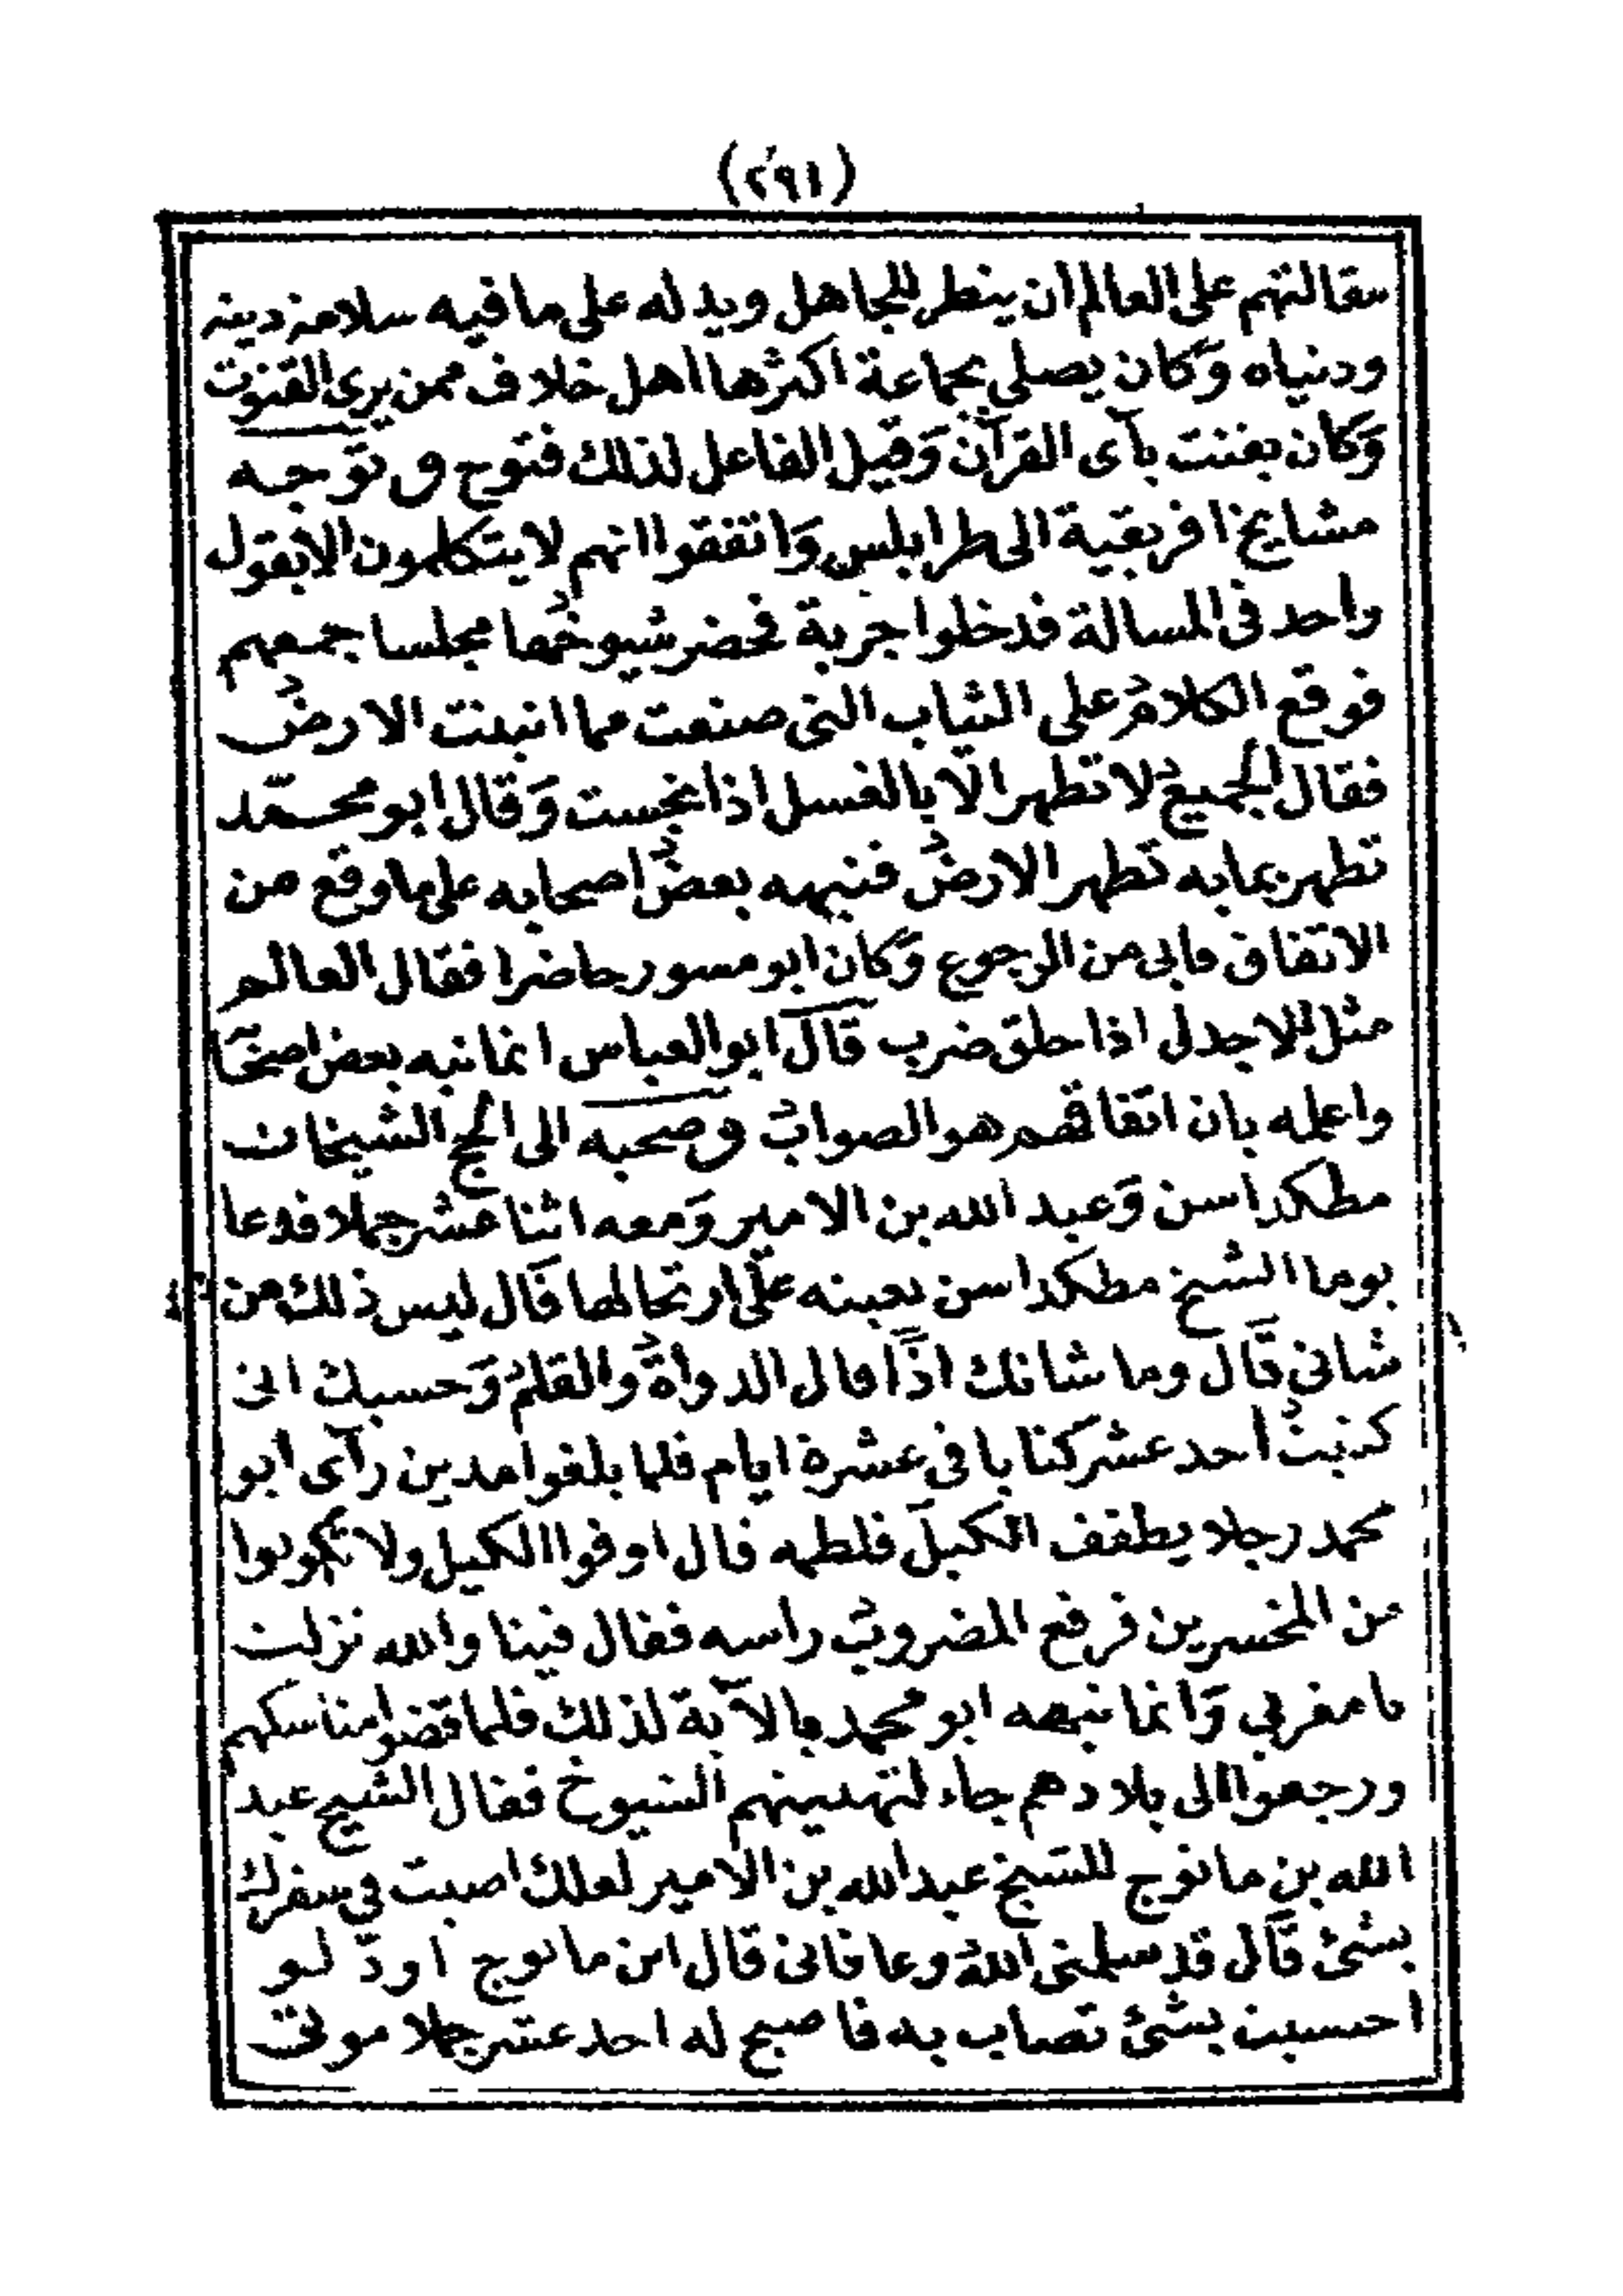 (٢٩١)
سقالتهم على العالم ان ينظر للجاهل ويدله على ما فيه سلامة دينه
ودنياه وَكان يصلى بجماعة اكثرها اهل خلاف ممن يرى القنوت
وَكان يقنت بآى القرآن وَقيل الفاعل لذلك فتوح وتوَجه
مشايخ افريقية الى طرابلس وَاتفقوا انهم لا يتكلمون الا بقول
واحد فى المسالة فدخلوا جربة فحضر شيوخُها مجلسا جمعهم
فوقع الكلامُ على الثياب التى صنعت مما انبتت الارضُ
فقال الجميعُ لا تطهر الّا بالغسل اذا نجست وَقال ابو محمّد
تطهر بما به تطهر الارضُ فنبهه بعضُ اصحابه على ما وقع من
الاتفاق فابى من الرجوع وَكان ابو مسور حاضرا فقال العالم
مثل للاجدلى اذا حلق ضرب قالَ ابو العباس انما نبه بعض اصحَا
واعلمه بان اتفاقهم هو الصوابُ وصحبه الى الحج الشيخان
مطكداسن وَعبد الله بن الامير وَمعه اثنا عشر جملا فدعا
يوما الشيخ مطكداسن يعينه علَى ارتحالها قَال ليس ذلك من
شانى قَال وما شانك اذًا قال الدواةُ والقلمُ وَحسبك انى
كتبتُ احد عشر كتابا فى عشرة ايام فلما بلغوا مدين رآى ابو
محمد رجلا يطفف الكيلَ فلطمه قال اوفوا الكيل ولا تكونوا
من المخسرين فرفع المضروبُ راسه فقال فينا والله نزلت
يا مغربى وَانما نبهه ابو محمد بالآية لذلك فلما قضوا مناسكهم
ورجعوا الى بلادهم جاء لتهنينهم الشيوخ فقال الشيخ عبد
الله بن مانوج للشيخ عبد الله بن الامير لعلك اصبت في سفرك
بشئ قَال قد سلمنى اللهُ وعافانى قال ابن مانوج اودّ لو
احسبت بشئ تصاب به فاصبح له احد عشر جملا موتى